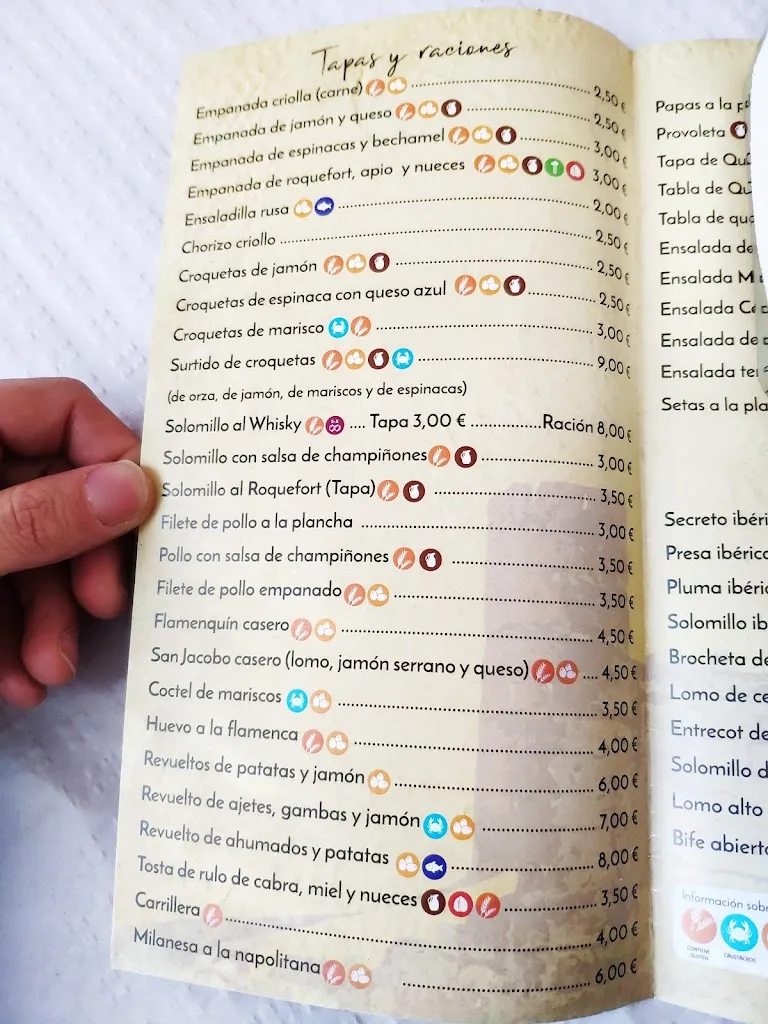 Tapas y raciones
Empanada criolla (carne) 2,50 €
Empanada de jamón y queso 2,50 €
Empanada de espinacas y bechamel 3,00 €
Empanada de roquefort, apio y nueces 3,00 €
Ensaladilla rusa 2,00 €
Chorizo criollo 2,50 €
Croquetas de jamón 2,50 €
Croquetas de espinaca con queso azul 2,50 €
Croquetas de marisco 3,00 €
Surtido de croquetas 9,00 €
(de orza, de jamón, de mariscos y de espinacas)
Solomillo al Whisky .... Tapa 3,00 € ..................Ración 8,00 €
Solomillo con salsa de champiñones 3,00 €
Solomillo al Roquefort (Tapa) 3,50 €
Filete de pollo a la plancha 3,00 €
Pollo con salsa de champiñones 3,50 €
Filete de pollo empanado 3,50 €
Flamenquín casero 4,50 €
San Jacobo casero (lomo, jamón serrano y queso) .... 4,50 €
Coctel de mariscos 3,50 €
Huevo a la flamenca 4,00 €
Revueltos de patatas y jamón 6,00 €
Revuelto de ajetes, gambas y jamón 7,00 €
Revuelto de ahumados y patatas 8,00 €
Tosta de rulo de cabra, miel y nueces 3,50 €
Carrillera 4,00 €
Milanesa a la napolitana 6,00 €
Papas a la
Provoleta
Tapa de
Tabla de
Tabla de
Ensalada de
Ensalada
Ensalada
Ensalada de
Ensalada
Setas a la
Secreto
Presa
Pluma
Solomillo
Brocheta
Lomo de
Entrecot
Solomillo
Lomo alto
Bife
Información
CONTIENE GLUTEN
CRUSTÁCEOS